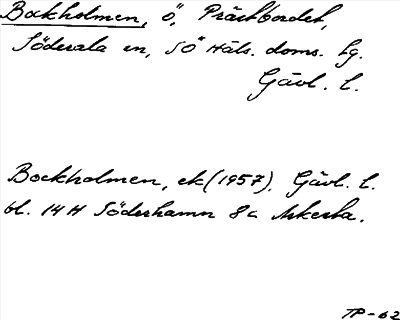 Bockholmen, ö, Prästbordet,
Söderala sn, SÖ Häls. doms. fg.
Gävl. l.
Bockholmen, ek (1957), Gävl. l.
bl. 14 H Söderhamn 8 c Askesta.
TP-62